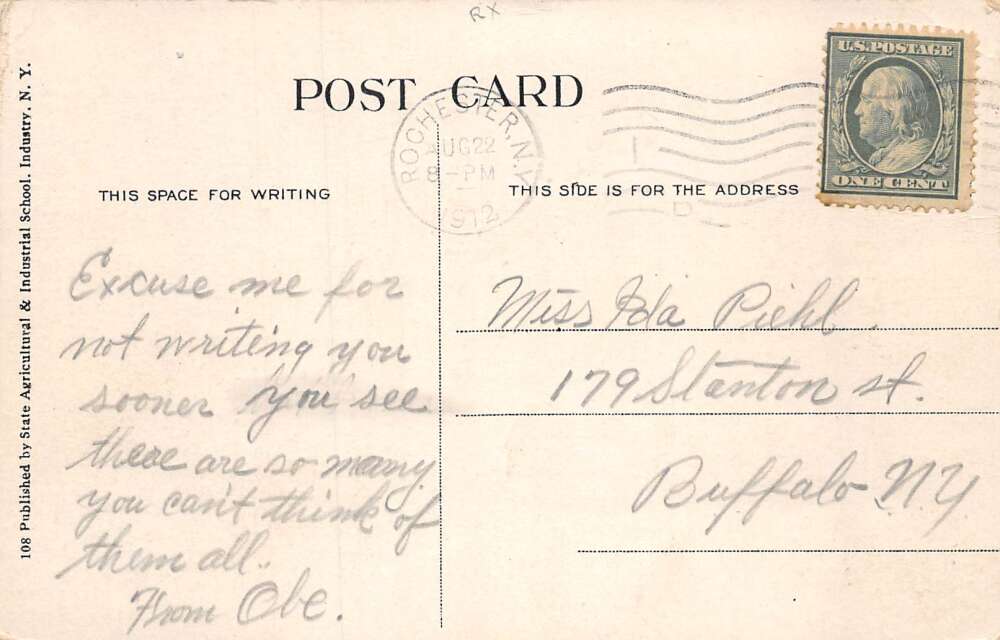 RX
POST CARD
U.S. POSTAGE
ONE CENT
ROCHESTER, N.Y.
AUG 22
8-PM
1912
THIS SPACE FOR WRITING
THIS SIDE IS FOR THE ADDRESS
108 Published by State Agricultural & Industrial School, Industry, N. Y.
Excuse me for
not writing you
sooner you see
there are so many
you can't think of
them all.
From Obe.
Miss Ida Piehl.
179 Stanton st.
Buffalo N Y